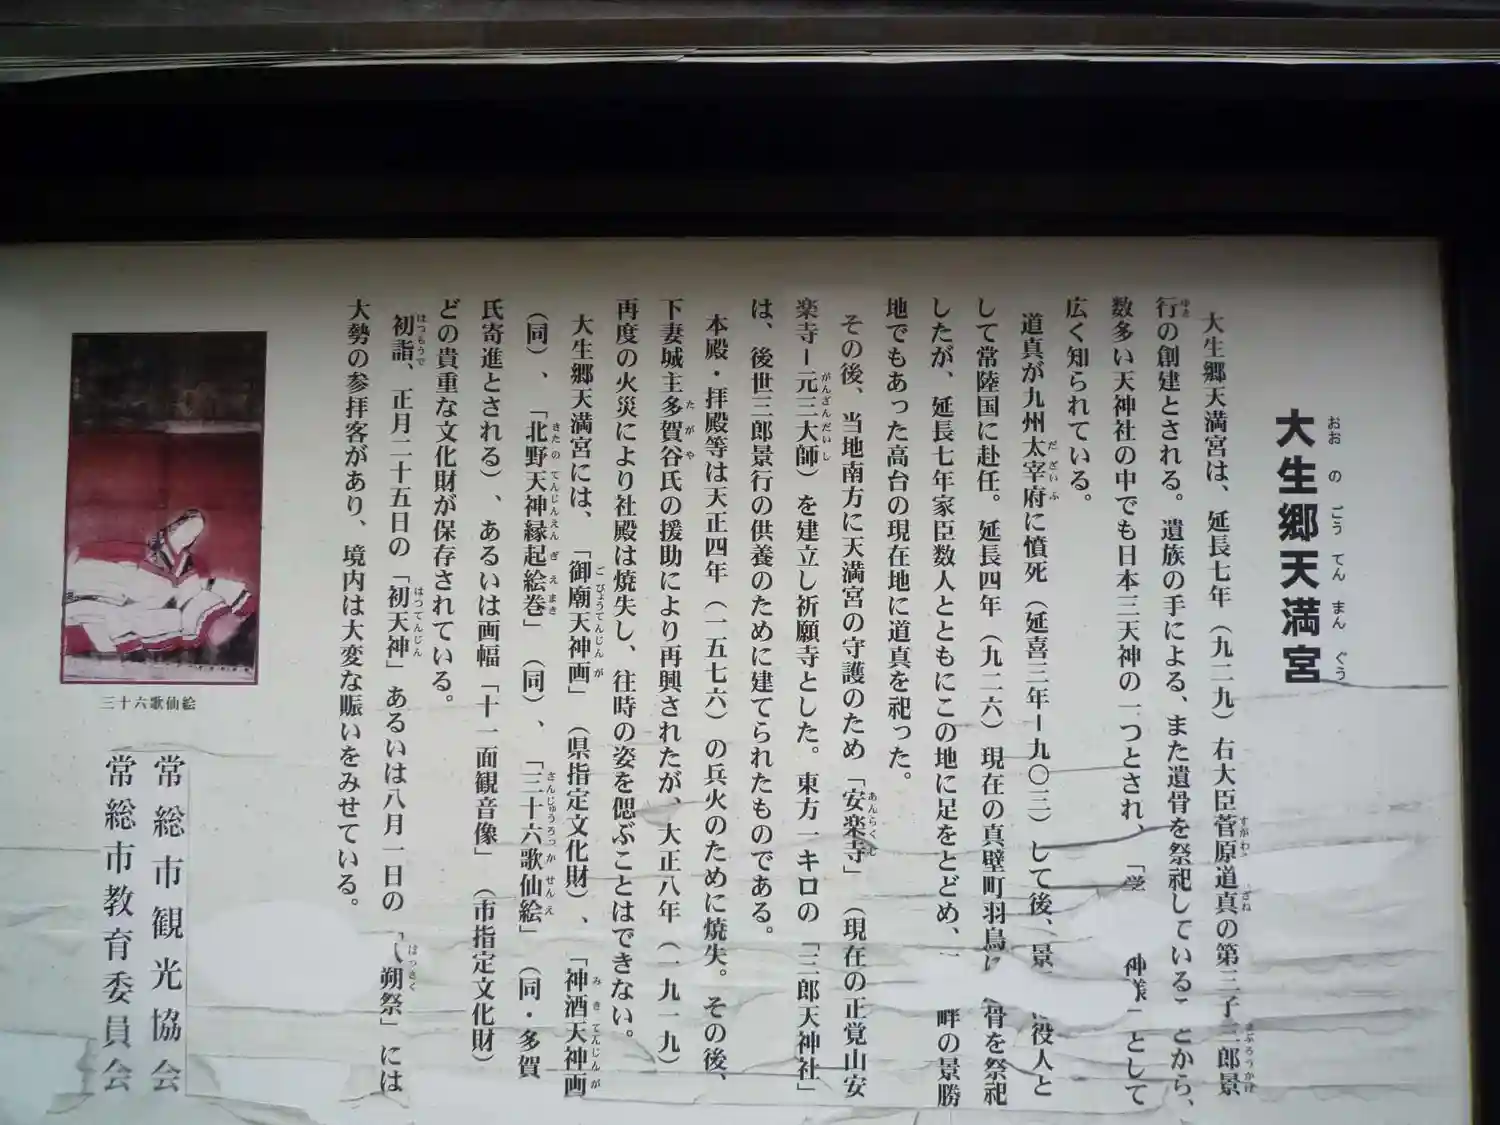 大生郷天満宮
大生郷天満宮は、延長七年（九二九）右大臣菅原道真の第三子三郎景
行の創建とされる。遺族の手による、また遺骨を祭祀していることから、
数多い天神社の中でも日本三天神の一つとされ、「学 神様」として
広く知られている。
道真が九州太宰府に憤死（延喜三年ー九〇三）して後、景 役人と
して常陸国に赴任。延長四年（九二六）現在の真壁町羽鳥に 骨を祭祀
したが、延長七年家臣数人とともにこの地に足をとどめ、 畔の景勝
地でもあった高台の現在地に道真を祀った。
その後、当地南方に天満宮の守護のため「安楽寺」（現在の正覚山安
楽寺ー元三大師）を建立し祈願寺とした。東方一キロの「三郎天神社」
は、後世三郎景行の供養のために建てられたものである。
本殿・拝殿等は天正四年（一五七六）の兵火のために焼失。その後、
下妻城主多賀谷氏の援助により再興されたが、大正八年（一九一九）
再度の火災により社殿は焼失し、往時の姿を偲ぶことはできない。
大生郷天満宮には、「御廟天神画」（県指定文化財）、「神酒天神画
（同）、「北野天神縁起絵巻」（同）、「三十六歌仙絵」（同・多賀
氏寄進とされる）、あるいは画幅「十一面観音像」（市指定文化財）
どの貴重な文化財が保存されている。
初詣、正月二十五日の「初天神」あるいは八月一日の「八朔祭」には
大勢の参拝客があり、境内は大変な賑いをみせている。
三十六歌仙絵
常総市観光協会
常総市教育委員会